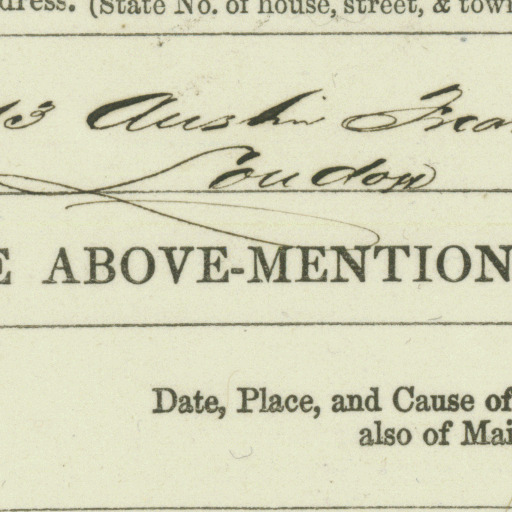 dress. (State No. of house, street, & town
13 Austin Friar
London
E ABOVE-MENTION
Date, Place, and Cause of
also of Mai